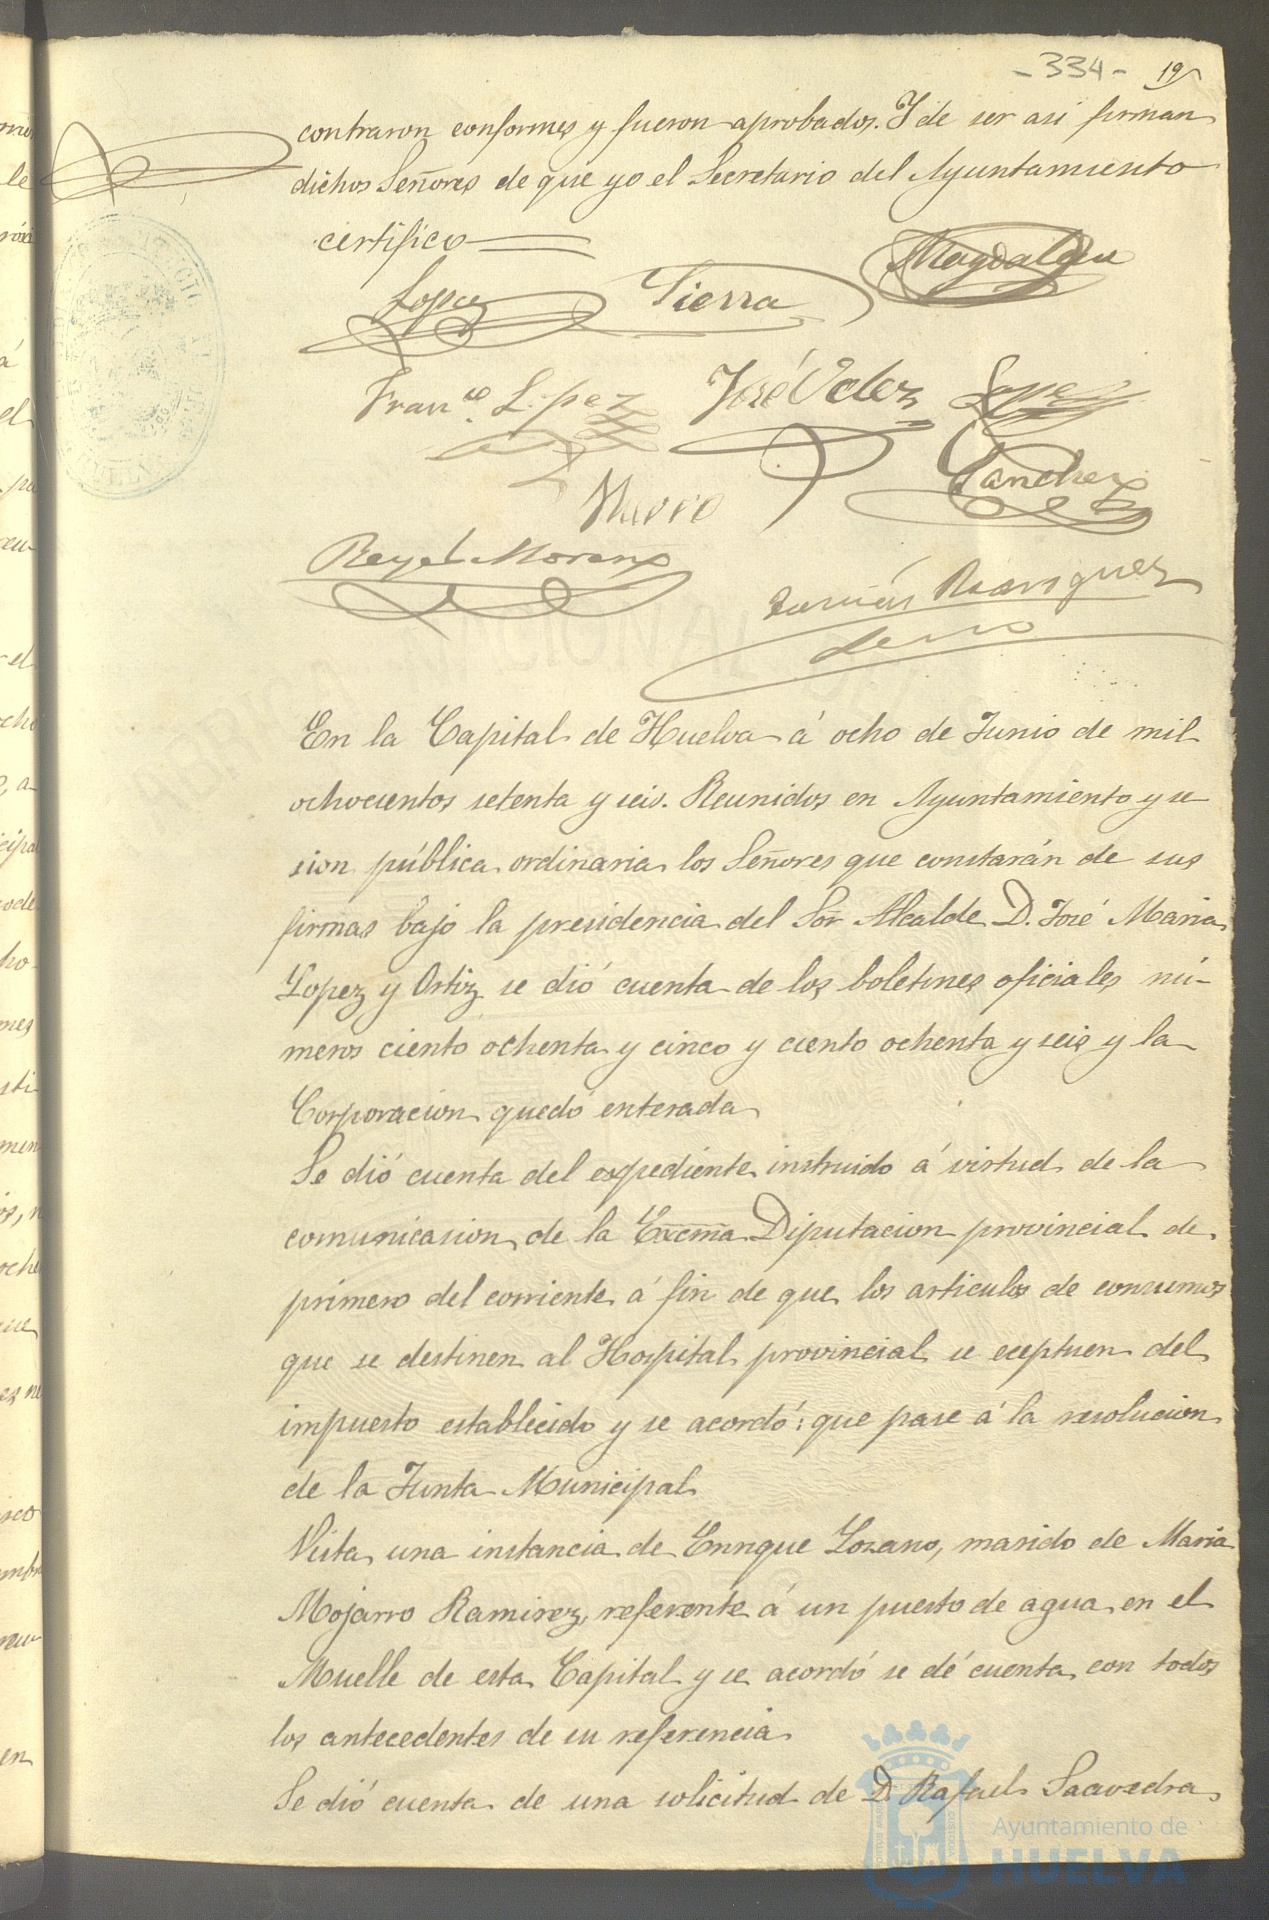 -334- 19
contraron conformes y fueron aprobados. Y de ser asi firman
dichos Señores de que yo el Secretario del Ayuntamiento
certifico
Lopez Sierra Magdalena
Fran.co Lopez José Velez Lopez
Sanchez
Navro
Reyes Moreno
Tomás Rodriguez
En la Capital de Huelva á ocho de Junio de mil
ochocientos setenta y seis. Reunidos en Ayuntamiento y se
sion pública ordinaria los Señores que constarán de sus
firmas bajo la presidencia del Sor Alcalde D. José Maria
Lopez y Ortiz se dió cuenta de los boletines oficiales nú-
meros ciento ochenta y cinco y ciento ochenta y seis y la
Corporacion quedó enterada
Se dió cuenta del expediente instruido á virtud de la
comunicasion de la Excma Diputacion provincial de
primero del corriente á fin de que los articulos de consumos
que se destinen al Hospital provincial se eceptuen del
impuesto establecido y se acordó: que pase á la resolucion
de la Junta Municipal
Vista una instancia de Enrique Lozano, marido de Maria
Mojarro Ramirez, referente á un puesto de agua en el
Muelle de esta Capital y se acordó se dé cuenta con todos
los antecedentes de su referencia
Se dió cuenta de una solicitud de D. Rafael Saavedra
Ayuntamiento de
HUELVA